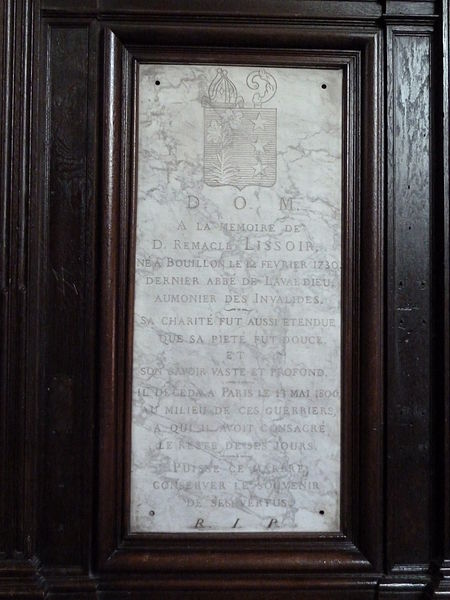 D. O. M.
A LA MEMOIRE DE
D. REMACLE LISSOIR,
NÉ A BOUILLON LE 12 FEVRIER 1730,
DERNIER ABBÉ DE LAVALDIEU,
AUMONIER DES INVALIDES.
SA CHARITÉ FUT AUSSI ETENDUE
QUE SA PIETÉ FUT DOUCE,
ET
SON SAVOIR VASTE ET PROFOND.
IL DECEDA A PARIS LE 13 MAI 1806,
AU MILIEU DE CES GUERRIERS,
A QUI IL AVOIT CONSACRÉ
LE RESTE DE SES JOURS.
PUISSE CE MARBRE,
CONSERVER LE SOUVENIR
DE SES VERTUS.
R. I. P.